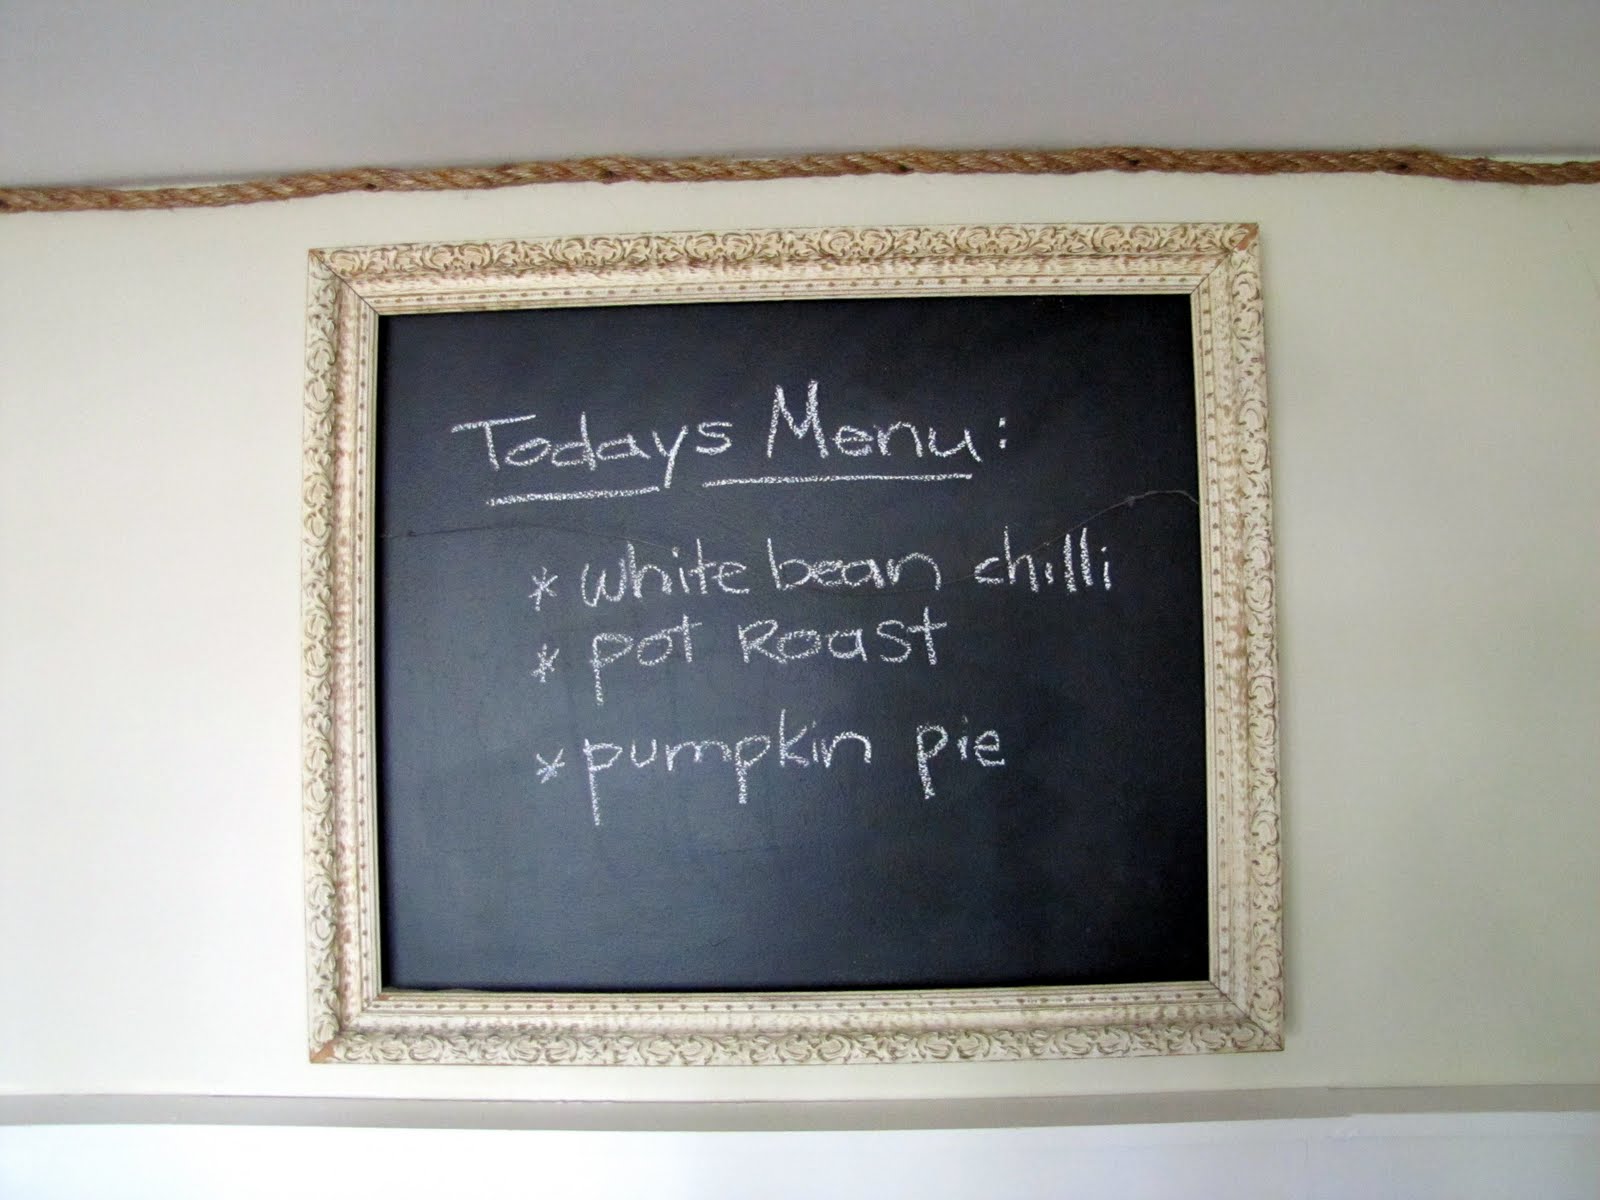 Todays Menu:
* white bean chilli
* pot Roast
* pumpkin pie